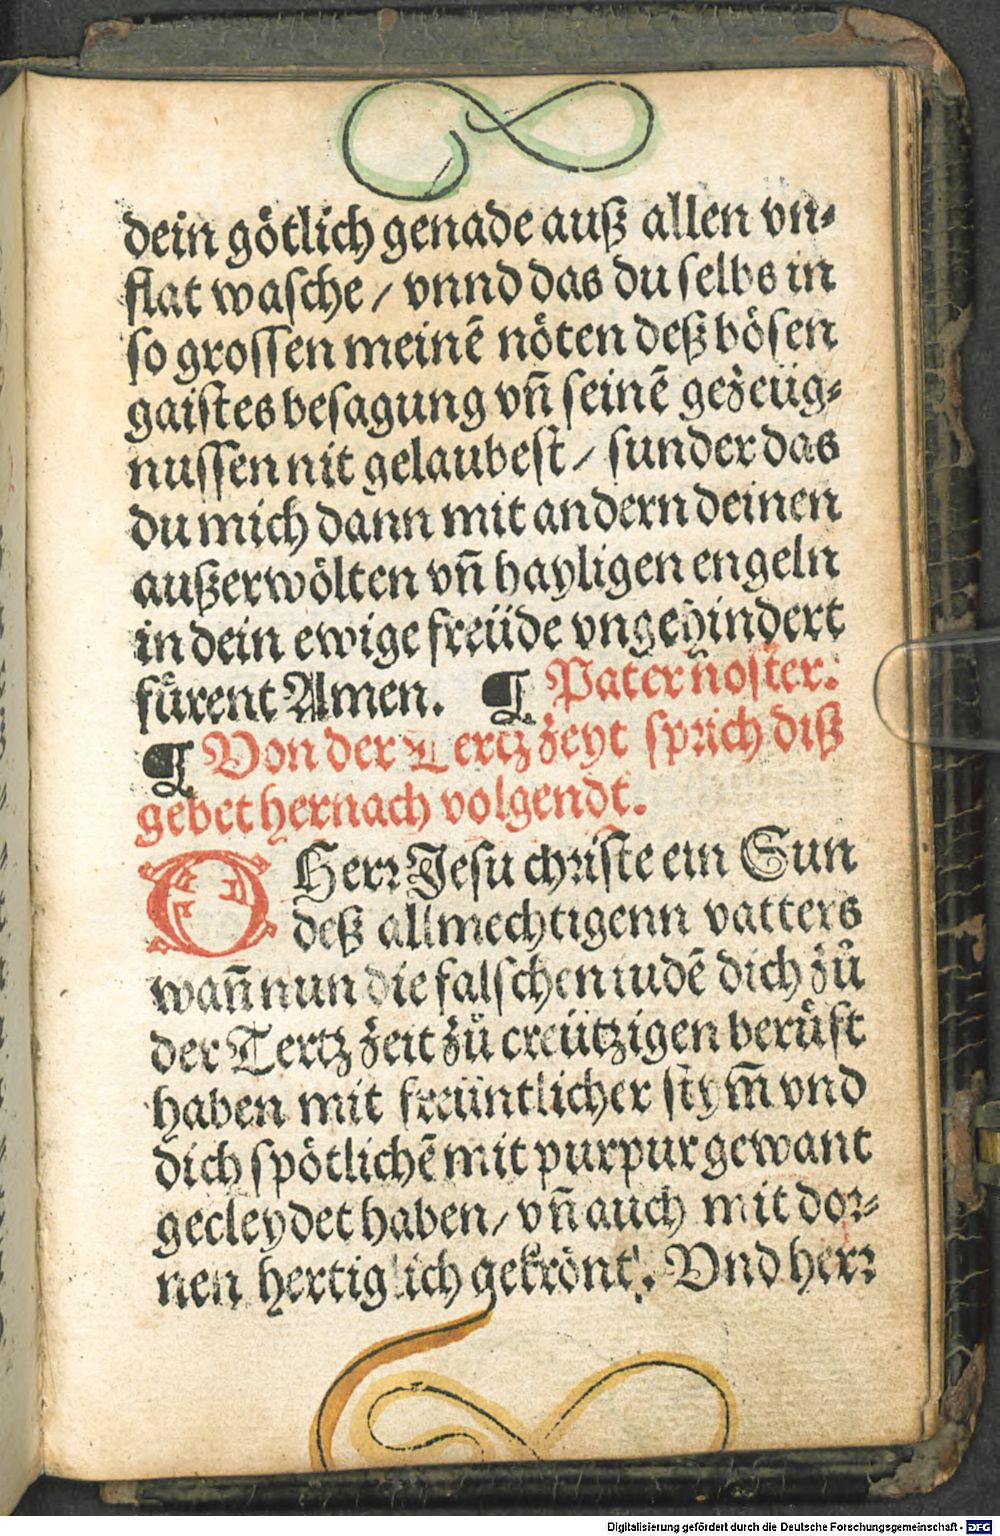 dein götlich genade auß allen vn⸗
flat wasche / vnnd das du selbs in
so grossen meinē nöten deß bösen
gaistes besagung vñ seinē gezeüg⸗
nussen nit gelaubest / sunder das
du mich dann mit andern deinen
außerwölten vñ hayligen engeln
in dein ewige freüde vngehindert
fürent Amen. ¶ Pater noster:
¶ Von der Tertz zeyt sprich diß
gebet hernach volgendt.
O Herr Jesu christe ein Sun
deß allmechtigenn vatters
wañ nun die falschen iudē dich zů
der Tertz zeit zů creützigen berůft
haben mit freüntlicher stym̄ vnd
dich spötlichē mit purpur gewant
gecleydet haben / vñ auch mit dor⸗
nen hertiglich gekrönt. Vnd herr
Digitalisierung gefördert durch die Deutsche Forschungsgemeinschaft - DFG